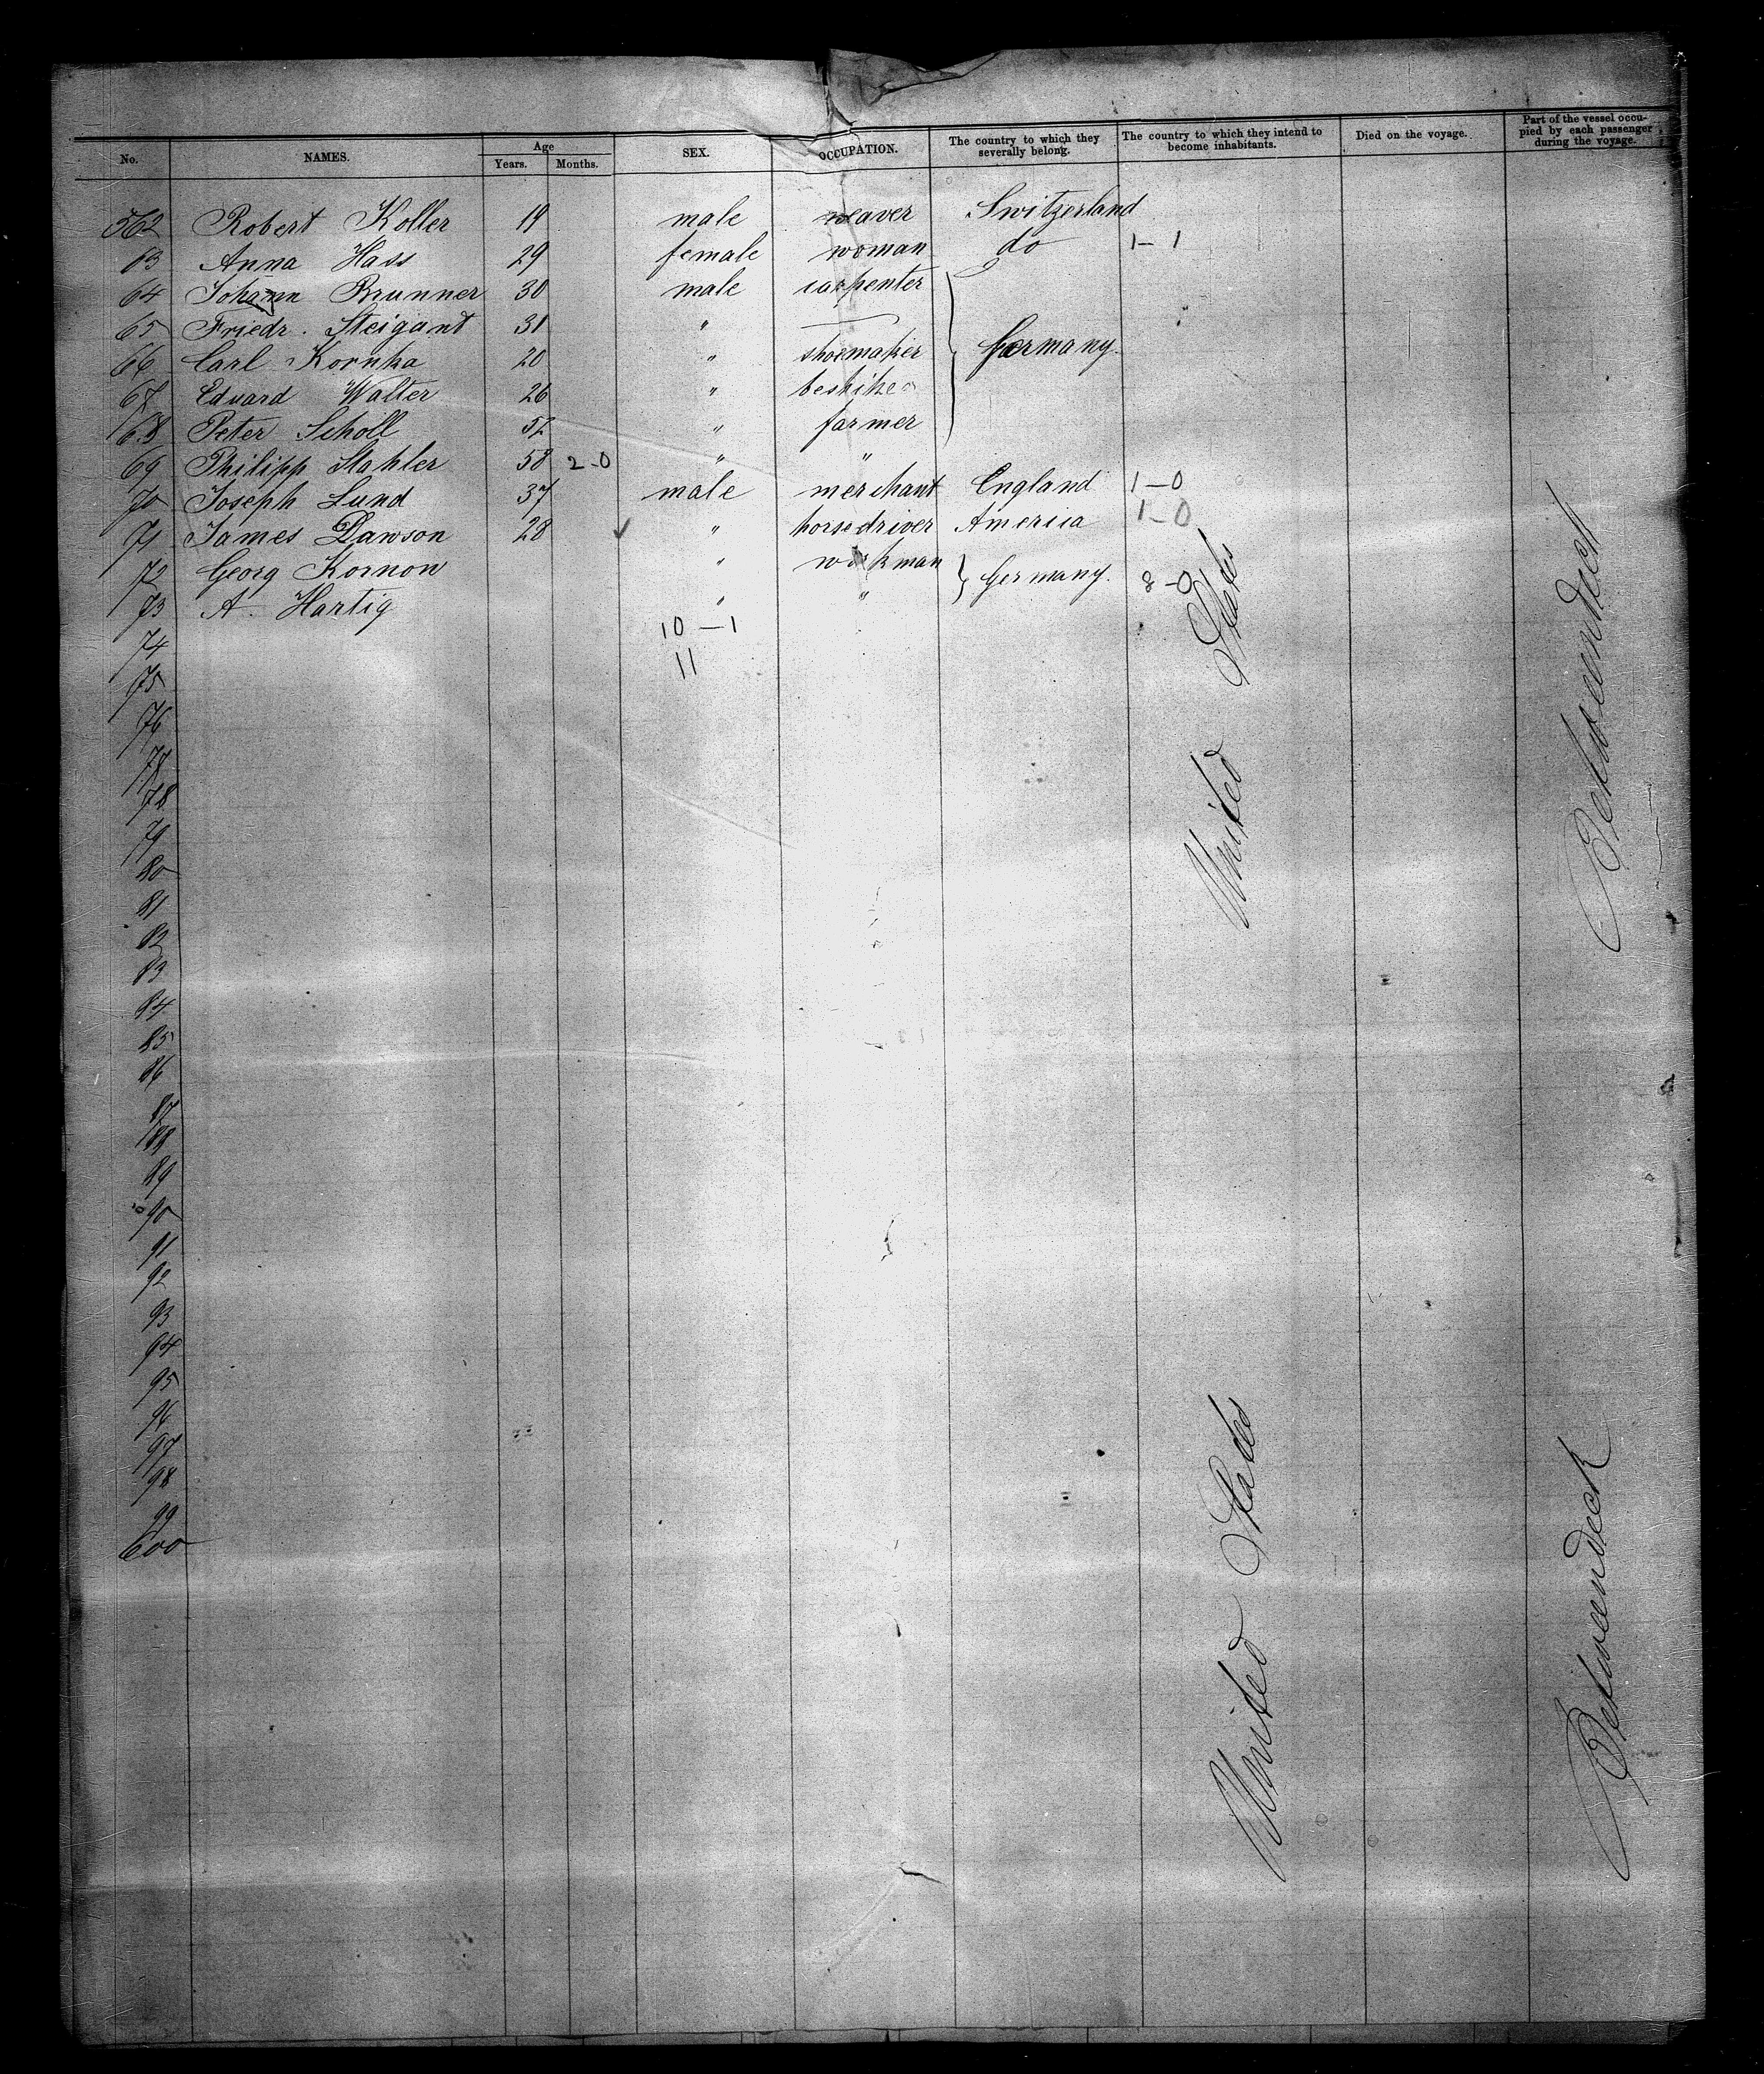 No. NAMES. Age Years. Months. SEX. OCCUPATION. The country to which they severally belong. The country to which they intend to become inhabitants. Died on the voyage. Part of the vessel occupied by each passenger during the voyage.
562 Robert Koller 19 male weaver Switzerland
63 Anna Hass 29 female woman do 1-1
64 Johann Brunner 30 male carpenter
65 Friedr. Steigant 31 "
66 Carl Kornka 20 " shoemaker Germany.
67 Eduard Walter 26 "
68 Peter Scholl 52 " farmer
69 Philipp Stahler 58 2-0 " "
70 Joseph Lund 37 male merchant England 1-0
71 James Dawson 28 ✓ " horsedriver America 1-0
72 Georg Kornow " workman Germany. 8-0
73 A. Hartig " "
74 10-1
75 11
76
77
78
79
80
81
82
83
84
85
86
87
88
89
90
91
92
93
94
95
96
97
98
99
600
United States
Betweendeck
United States
Betweendeck